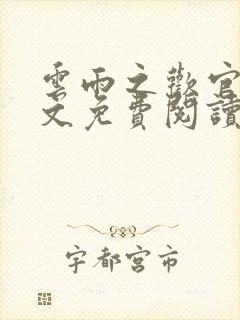 雲雨之歡官
文免費閱讀
宇都宮市